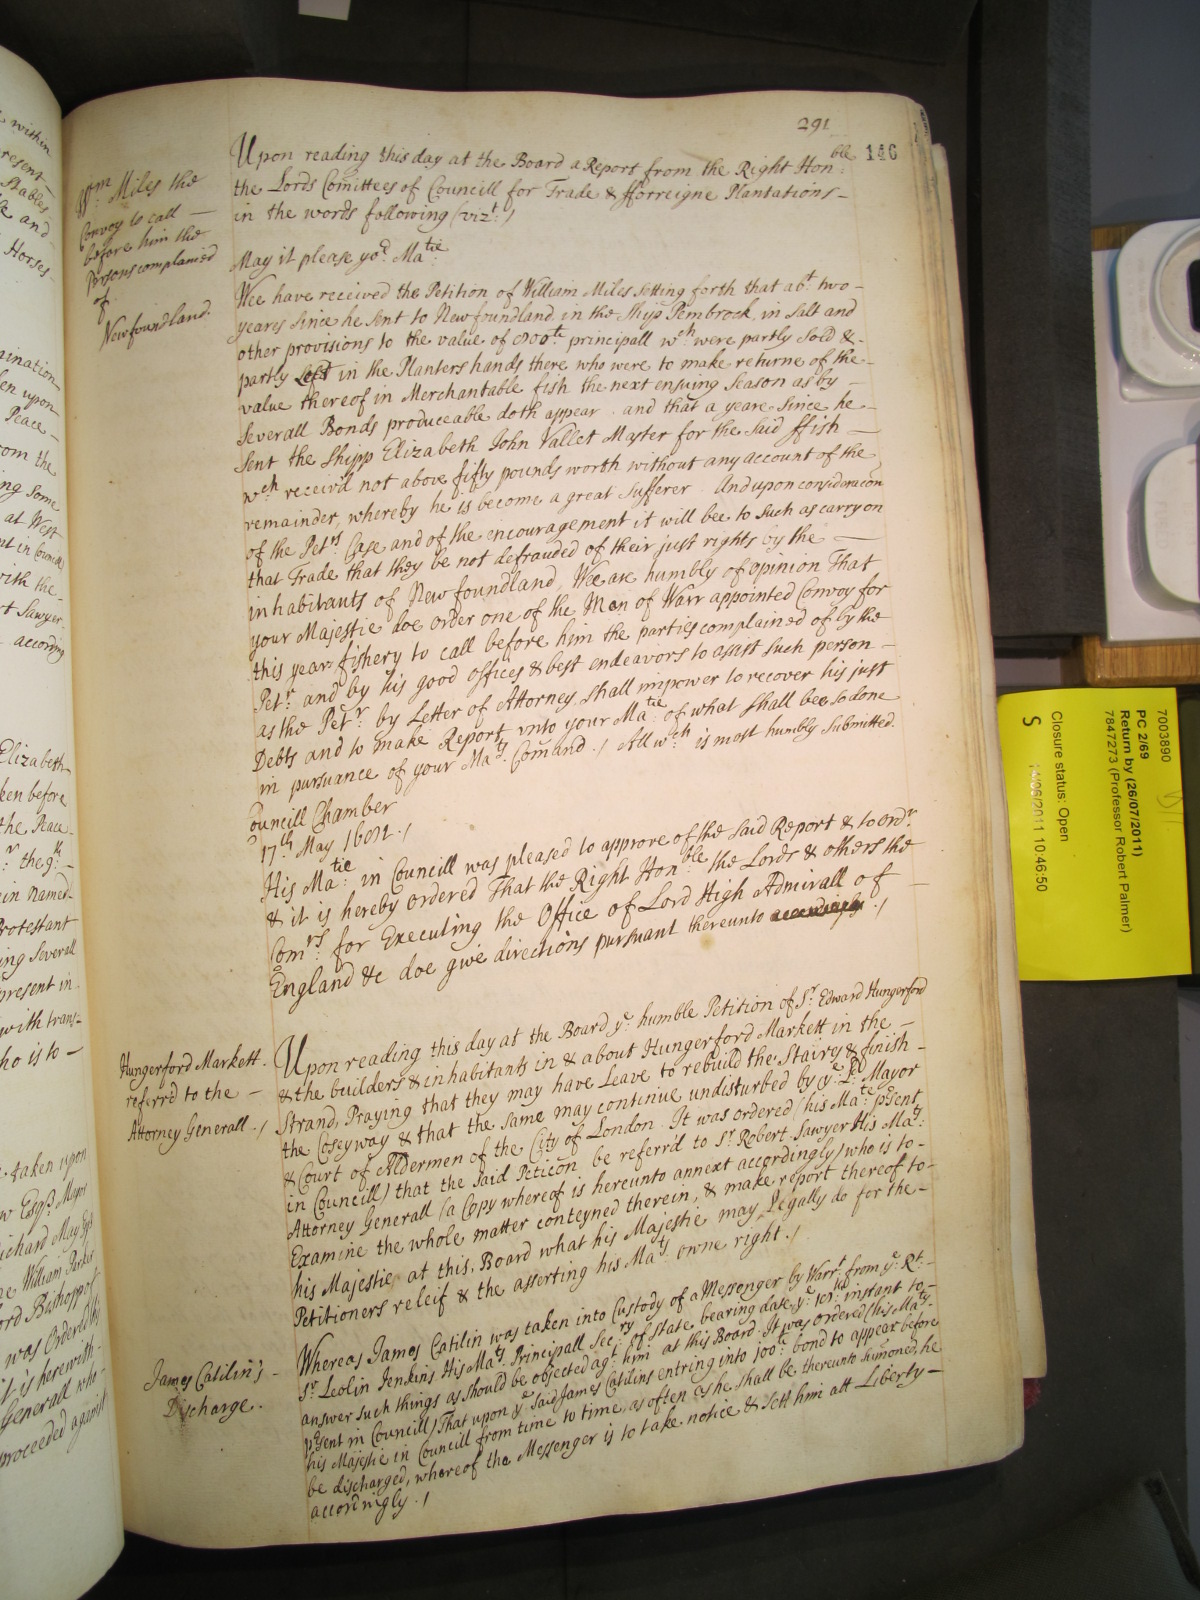 291
146
Wm. Miles the
Convoy to call —
before him the
Persons complained
of.
Newfoundland.
Upon reading this day at the Board a Report from the Right Honble:
the Lords Comittees of Councill for Trade & fforreigne Plantations —
in the words following (vizt:)
May it please yor. Matie:
Wee have received the Petition of William Miles setting forth that abt. two —
yeares since he sent to Newfoundland in the Ship Pembrock, in Salt and
other provisions to the value of principall wch were partly Sold & -
partly left in the Planters hands there who were to make returne of the -
value thereof in Merchantable fish the next ensuing Season as by —
Severall Bonds produceable doth appear. and that a yeare since he —
sent the Shipp Elizabeth John Vallet Master for the said ffish —
wch received not above fifty pounds worth without any account of the
remainder, whereby he is become a great Sufferer. And upon consideracon
of the Petrs. Case and of the encouragement it will bee to Such as carry on
that Trade that they be not defrauded of their just rights by the —
inhabitants of Newfoundland, Wee are humbly of opinion That
your Majestie doe order one of the Men of Warr appointed Convoy for
this years fishery to call before him the parties complained of by the
Petr. and by his good offices & best endeavors to assist such person —
as the Petr. by Letter of Attorney shall impower to recover his just
Debts and to make Report vnto your Matie. of what shall bee so done
in pursuance of your Mats. Comand./ All wch. is most humbly Submitted.
Councill Chamber
17th May 1682./
His Matie: in Councill was pleased to approve of the said Report & to ordr.
& it is hereby ordered That the Right Honble the Lords & others the
Comrs. for Executing the Office of Lord High Admirall of —
England &c doe give directions pursuant thereunto ./
Hungerford Markett.
referrd to the —
Attorney Generall./
Upon reading this day at the Board ye. humble Petition of Sr. Edward Hungerford
& the builders & inhabitants in & about Hungerford Markett in the —
Strand, Praying that they may have Leave to rebuild the Stairs & finish -
the Coseyway & that the same may continue undisturbed by ye. Ld. Mayor
& Court of Aldermen of the City of London. It was ordered (his Matie. psent
in Councill) that the said Peticon be referrd to Sr. Robert Sawyer His Mats:
Attorney Generall (a Copy whereof is hereunto annext accordingly) who is to -
Examine the whole matter conteyned therein, & make report thereof to -
his Majestie at this Board what his Majestie may Legally do for the —
Petitioners releif & the asserting his Mats. owne right./
James Catilin's —
Discharge.
Whereas James Catilin was taken into Custody of a Messenger by Warrt. from ye: Rt. -
Sr. Leolin Jenkins His Mats. Principall Secry of State bearing date ye. instant to -
answer such things as should be objected agt. him at this Board. It was ordered (his Maty.
psent in Councill) That upon ye. said James Catilins entring into 100l: bond to appear before
his Majestie in Councill from time to time, as often as he shall be thereunto sumoned, he
be discharged, whereof the Messenger is to take notice & sett him att Liberty —
accordingly./
7003890
PC 2/69
Return by (26/07/2011)
7847273 (Professor Robert Palmer)
Closure status: Open
S
14/06/2011 10:46:50